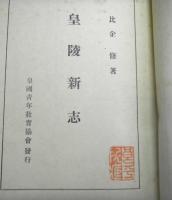 比企脩著
皇陵新志
皇國青年教育協會發行